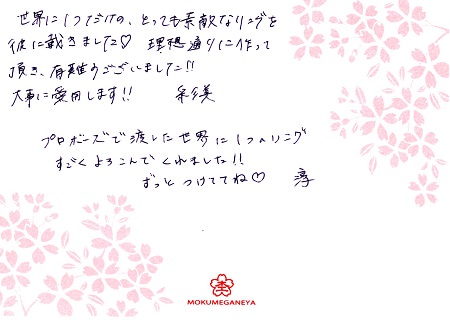 世界に1つだけの、とっても素敵なリングを
彼に戴きました♡ 理想通りに作って
頂き、有難うございました!!
大事に愛用します!!
プロポーズで渡した世界に1つのリング
すごくよろこんでくれました!!
ずっとつけててね♡ 淳
MOKUMEGANEYA